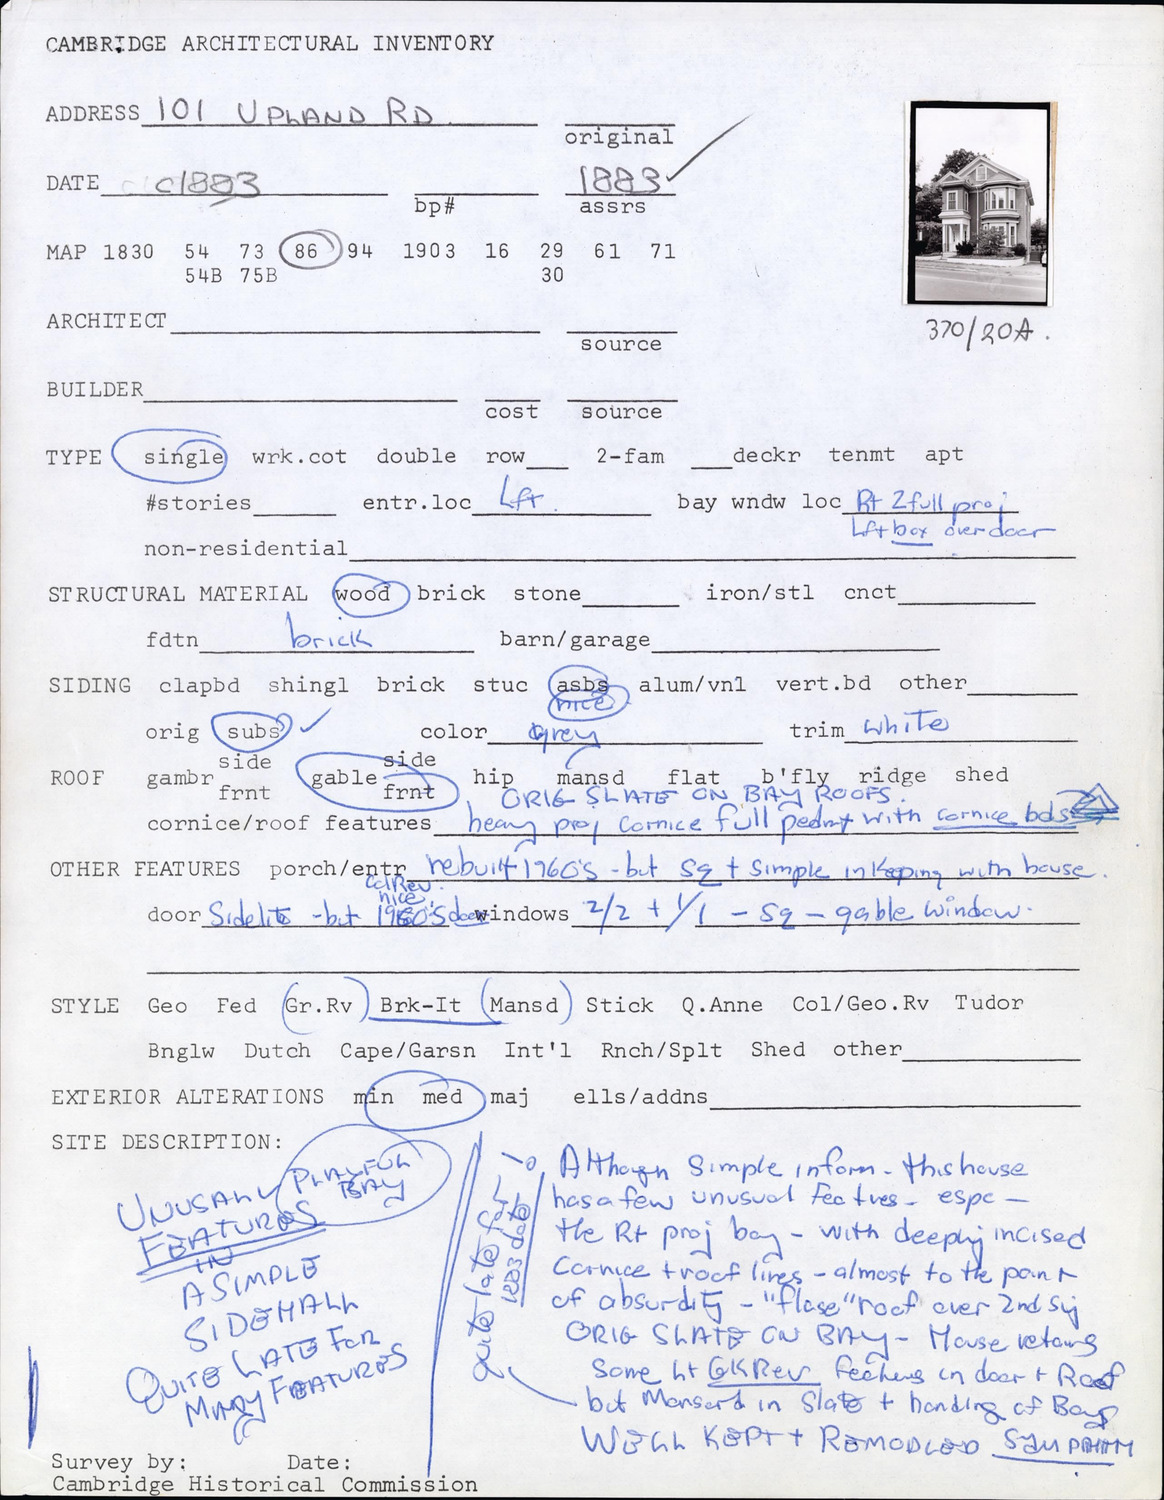 CAMBRIDGE ARCHITECTURAL INVENTORY
ADDRESS 101 UPLAND RD.
original
DATE c1883 1883
bp# assrs
MAP 1830 54 73 86 94 1903 16 29 61 71
54B 75B 30
370/20A.
ARCHITECT
source
BUILDER
cost source
TYPE single wrk.cot double row 2-fam deckr tenmt apt
#stories entr.loc Lft. bay wndw loc Rt 2 full proj
Lft box over door
non-residential
STRUCTURAL MATERIAL wood brick stone iron/stl cnct
fdtn brick barn/garage
SIDING clapbd shingl brick stuc asbs alum/vnl vert.bd other
nice
orig subs color grey trim white
side side
ROOF gambr gable hip mansd flat b'fly ridge shed
frnt frnt ORIG SLATE ON BAY ROOFS.
cornice/roof features heavy proj cornice full pedmt with cornice bds
OTHER FEATURES porch/entr rebuilt 1960's - but sq + simple in keeping with house.
ColRev.
nice
door Sidelits - but 1960's door windows 2/2 + 1/1 - sq - gable window.
STYLE Geo Fed Gr.Rv Brk-It Mansd Stick Q.Anne Col/Geo.Rv Tudor
Bnglw Dutch Cape/Garsn Int'l Rnch/Splt Shed other
EXTERIOR ALTERATIONS min med maj ells/addns
SITE DESCRIPTION:
PLAYFUL
BAY
UNUSALLY
FEATURES
IN
A SIMPLE
SIDEHALL
QUITE LATE FOR
MANY FEATURES
quite late for
1883 date!
Although simple in form - this house
has a few unusual featres - espc -
the Rt proj bay - with deeply incised
cornice + roof lines - almost to the point
of absurdity - "flase" roof over 2nd
ORIG SLATE ON BAY - House retains
some GKRev in door + Roof
but Mansard in Slate + handing of Bay
WELL KEPT + REMODLED
Survey by: Date:
Cambridge Historical Commission